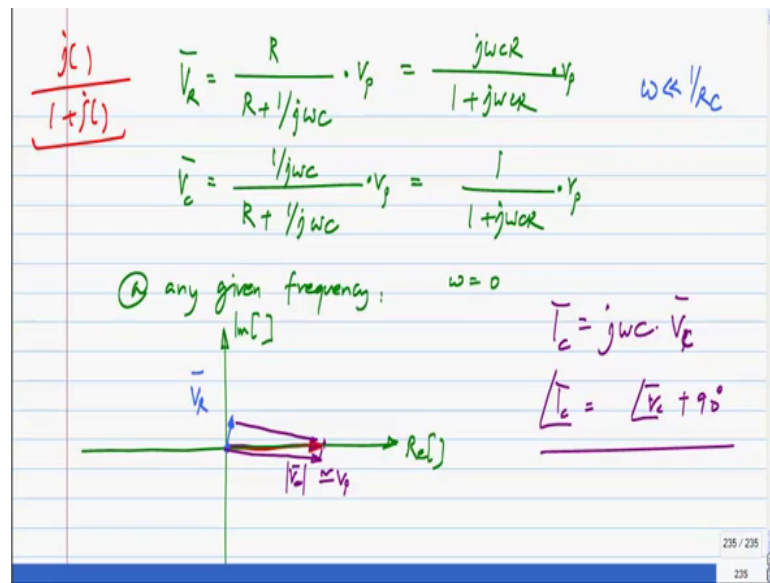 j( ) / 1 + j( )
V̄_R = R / (R + 1/jωC) · V_p = jωCR / (1 + jωCR) · V_p
ω << 1/RC
V̄_c = (1/jωC) / (R + 1/jωC) · V_p = 1 / (1 + jωCR) · V_p
@ any given frequency: ω = 0
Im[ ]
V̄_R
Re[ ]
|V̄_c| ≅ V_p
Ī_c = jωC · V̄_c
∠Ī_c = ∠V̄_c + 90°
235 / 235
235